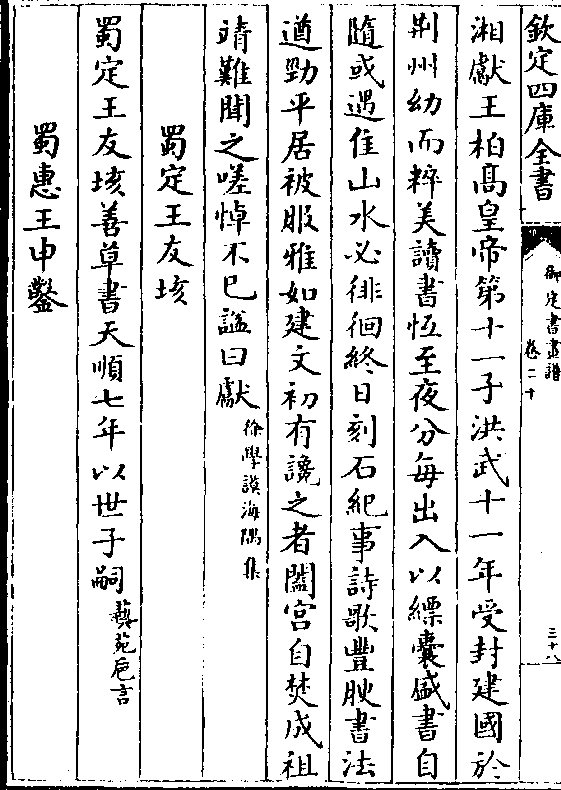 欽定四庫全書
御定書畫譜
卷二十
三十八
湘獻王柏髙皇帝第十一子洪武十一年受封建國於
荆州幼而粹美讀書恆至夜分毎出入以縹囊盛書自
隨或遇佳山水必徘徊終日刻石紀事詩歌豐腴書法
遒勁平居被服雅如建文初有讒之者闔宫自焚成祖
靖難聞之嗟悼不已諡曰獻徐學謨海隅集
蜀定王友垓
蜀定王友垓善草書天順七年以世子嗣藝苑巵言
蜀惠王申鑿